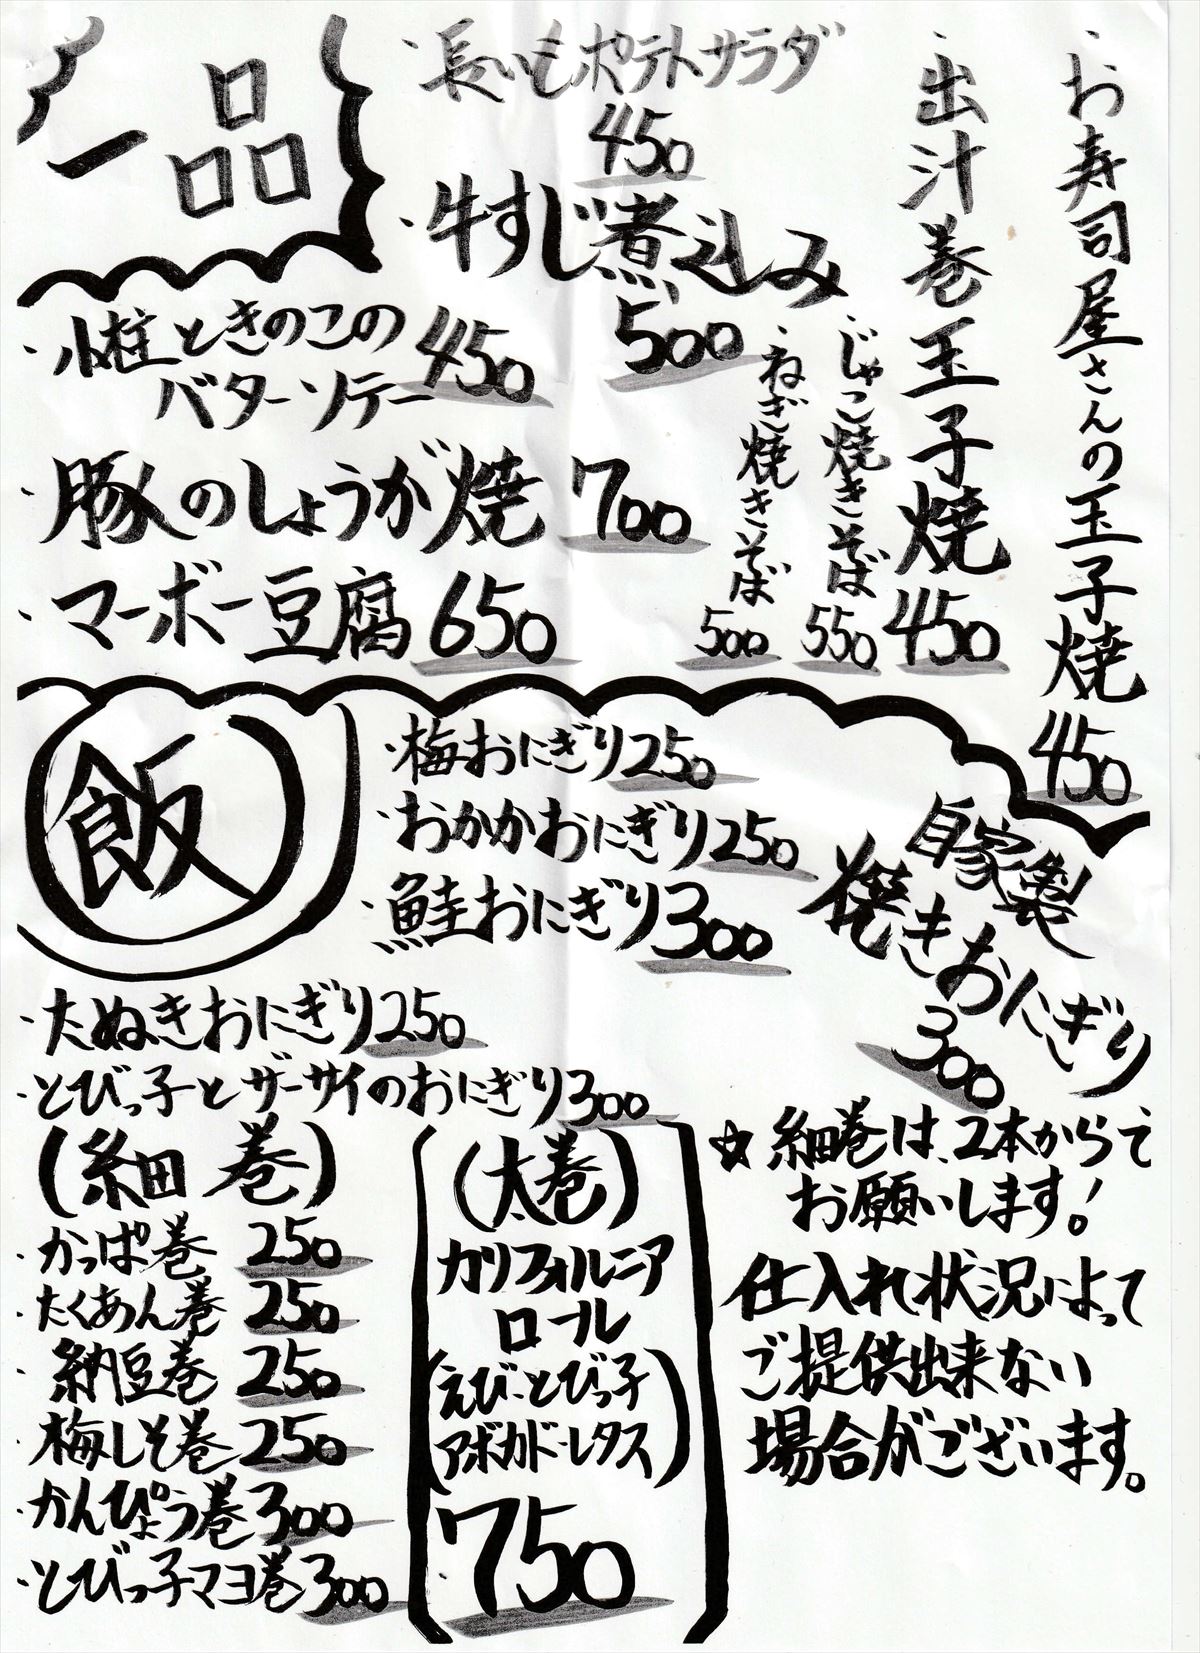 一品
・長いもポテトサラダ
450
・牛すじ煮込み
500
・小柱ときのこの
バターソテー 450
・豚のしょうが焼 700
・マーボー豆腐 650
・お寿司屋さんの玉子焼 450
・出汁巻玉子焼 450
・じゃこ焼きそば 550
・ねぎ焼きそば 500
飯
・梅おにぎり 250
・おかかおにぎり 250
・鮭おにぎり 300
自家製
焼きおにぎり
300
・たぬきおにぎり 250
・とびっ子とザーサイのおにぎり 300
(細巻)
・かっぱ巻 250
・たくあん巻 250
・納豆巻 250
・梅しそ巻 250
・かんぴょう巻 300
・とびっ子マヨ巻 300
(太巻)
カリフォルニア
ロール
(えび・とびっ子
アボカド・レタス)
750
☆細巻は、2本からで
お願いします!
仕入れ状況によって
ご提供出来ない
場合がございます。